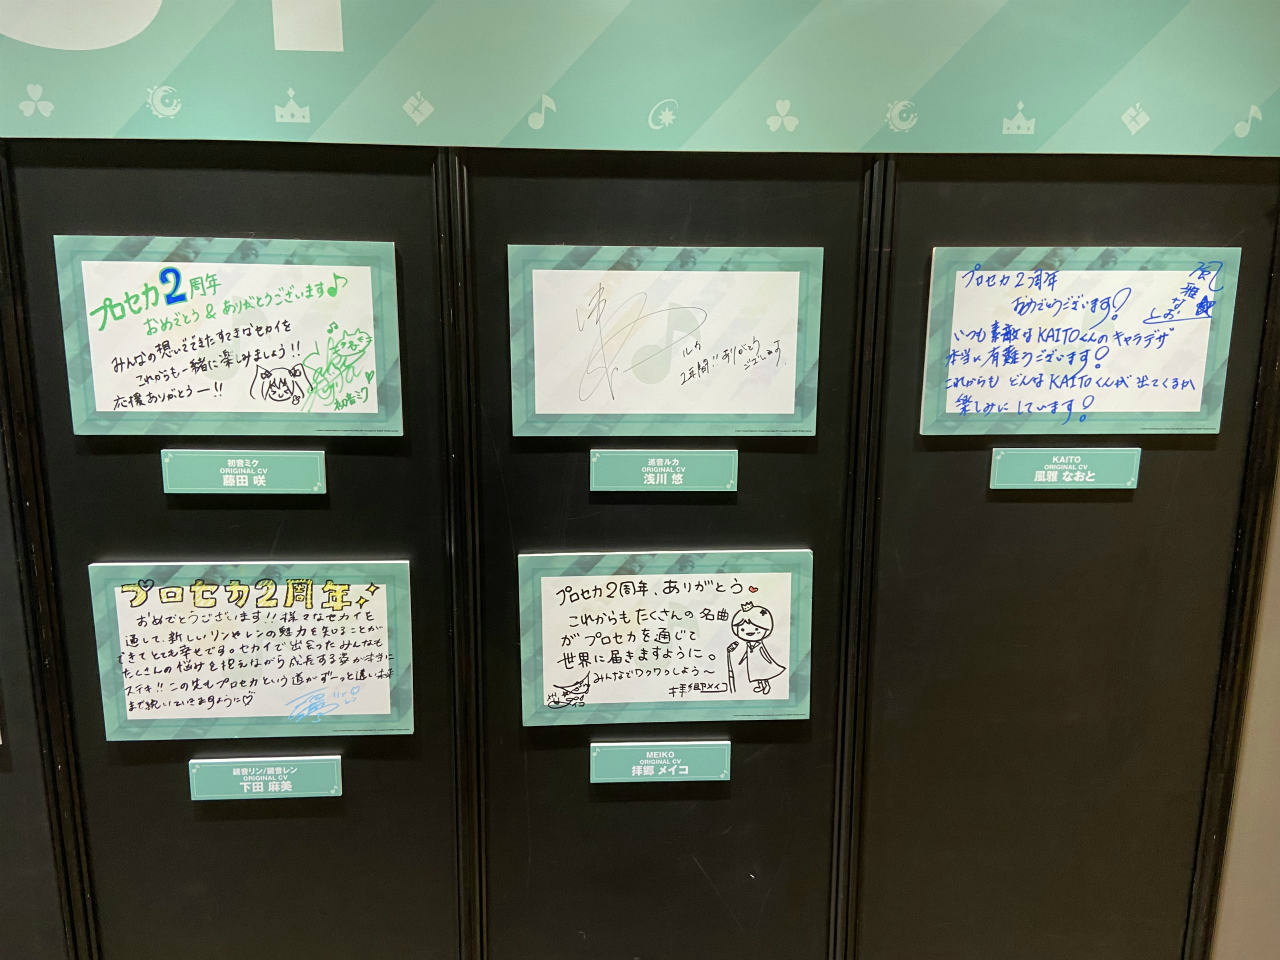 プロセカ2周年
おめでとう&ありがとうございます♪
みんなの想いでできたすてきなセカイを
これからも一緒に楽しみましょう!!
応援ありがとうー!!
初音ミク
初音ミク
ORIGINAL CV
藤田 咲
ルカ
2年間!!ありがとう
ございます
巡音ルカ
ORIGINAL CV
浅川 悠
プロセカ2周年
おめでとうございます!
風雅なおと
いつも素敵なKAITOくんのキャラデザ
本当に有難うございます!
これからもどんなKAITOくんが出てくるか
楽しみにしています!
KAITO
ORIGINAL CV
風雅 なおと
プロセカ2周年
おめでとうございます!!様々なセカイを
通して、新しいリンやレンの魅力を知ることが
できてとても幸せです。セカイで出会ったみんなも
たくさんの悩みを抱えながら成長する姿が本当に
ステキ!!この先もプロセカという道がずーっと遠い未来
まで続いていきますように♡
鏡音リン/鏡音レン
ORIGINAL CV
下田 麻美
プロセカ2周年、ありがとう♥
これからもたくさんの名曲
がプロセカを通じて
世界に届きますように。
みんなでワクワクしよう〜
拝郷メイコ
メイコ
MEIKO
ORIGINAL CV
拝郷 メイコ